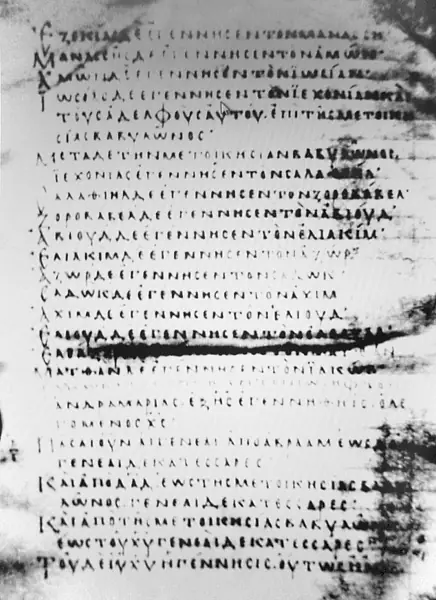 ΕΖΟΚΙΑΔΕΕΓΕΝΝΗϹΕΝΤΟΝΜΑΝΑϹϹΗ
ΜΑΝΑϹϹΗϹΔΕΕΓΕΝΝΗϹΕΝΤΟΝΑΜΩ
ΑΜΩ ΔΕΕΓΕΝΝΗϹΕΝΤΟΝΪΩϹΙΑ
ΙΩϹ ΔΕΕΓΕΝΝΗϹΕΝΤΟΝΪΕΧΟΝΙΑΝΚΑΙ
ΤΟΥϹΑΔΕΛΦΟΥϹΑΥΤΟΥ·ΕΠΙΤΗϹΜΕΤΟΙΚΗ
ϹΙΑϹΒΑΒΥΛΩΝΟϹ·
ΜΕΤΑΔΕΤΗΝΜΕΤΟΙΚΗϹΙΑΝΒΑΒΥΛΩΝΟϹ·
ΪΕΧΟΝΙΑϹΕΓΕΝΝΗϹΕΝΤΟΝϹΑΛΑΘΙΗΛ·
ϹΑΛΑΘΙΗΛΔΕΕΓΕΝΝΗϹΕΝΤΟΝΖΟΡΟΒΑΒΕΛ
ΖΟΡΟΒΑΒΕΛΔΕΕΓΕΝΝΗϹΕΝΤΟΝΑΒΙΟΥΔ·
ΑΒΙΟΥΔΔΕΕΓΕΝΝΗϹΕΝΤΟΝΕΛΙΑΚΙΜ·
ΕΛΙΑΚΙΜΔΕΕΓΕΝΝΗϹΕΝΤΟΝΑΖΩΡ·
ΑΖΩΡΔΕΕΓΕΝΝΗϹΕΝΤΟΝϹΑΔΩΚ·
ϹΑΔΩΚΔΕΕΓΕΝΝΗϹΕΝΤΟΝΑΧΙΜ
ΑΧΙΜΔΕΕΓΕΝΝΗϹΕΝΤΟΝΕΛΙΟΥΔ·
ΕΛΙΟΥΔΔΕΕΓΕΝΝΗϹΕΝΤΟΝΕΛΕΑΖΑΡ·
ΜΑΤΘΑΝΔΕΕΓΕΝΝΗϹΕΝΤΟΝΪΑΚΩΒ·
ΑΝΔΡΑΜΑΡΙΑϹ·ΕΞΗϹΕΓΕΝΝΗΘΗΙϹ·ΟΛΕ
ΓΟΜΕΝΟϹΧϹ·
ΠΑϹΑΙΟΥΝΑΙΓΕΝΕΑΙΑΠΟΑΒΡΑΑΜΕΩϹΔ
ΓΕΝΕΑΙΔΕΚΑΤΕϹϹΑΡΕϹ·
ΚΑΙΑΠΟΔΑΔ·ΕΩϹΤΗϹΜΕΤΟΙΚΗϹΙΑϹΒΑΒΥ
ΛΩΝΟϹ·ΓΕΝΕΑΙΔΕΚΑΤΕϹϹΑΡΕϹ·
ΚΑΙΑΠΟΤΗϹΜΕΤΟΙΚΗϹΙΑϹΒΑΒΥΛΩΝ
ΕΩϹΤΟΥΧΥΓΕΝΕΑΙΔΕΚΑΤΕϹϹΑΡΕϹ·
ΤΟΥΔΕΙΥΧΥΗΓΕΝΝΗϹΙϹ·ΟΥΤΩϹΗΝ